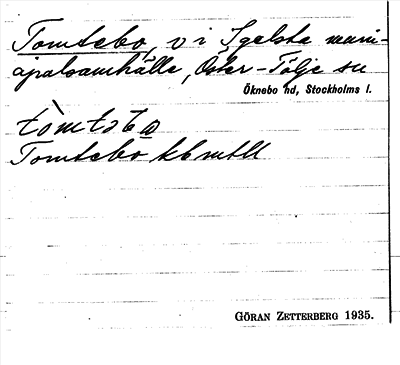 Tomtebo, v i Igelsta muni-
cipalsamhälle, Öster-Tälje sn
Öknebo hd, Stockholms l.
Tomtebo kbmtll
GÖRAN ZETTERBERG 1935.